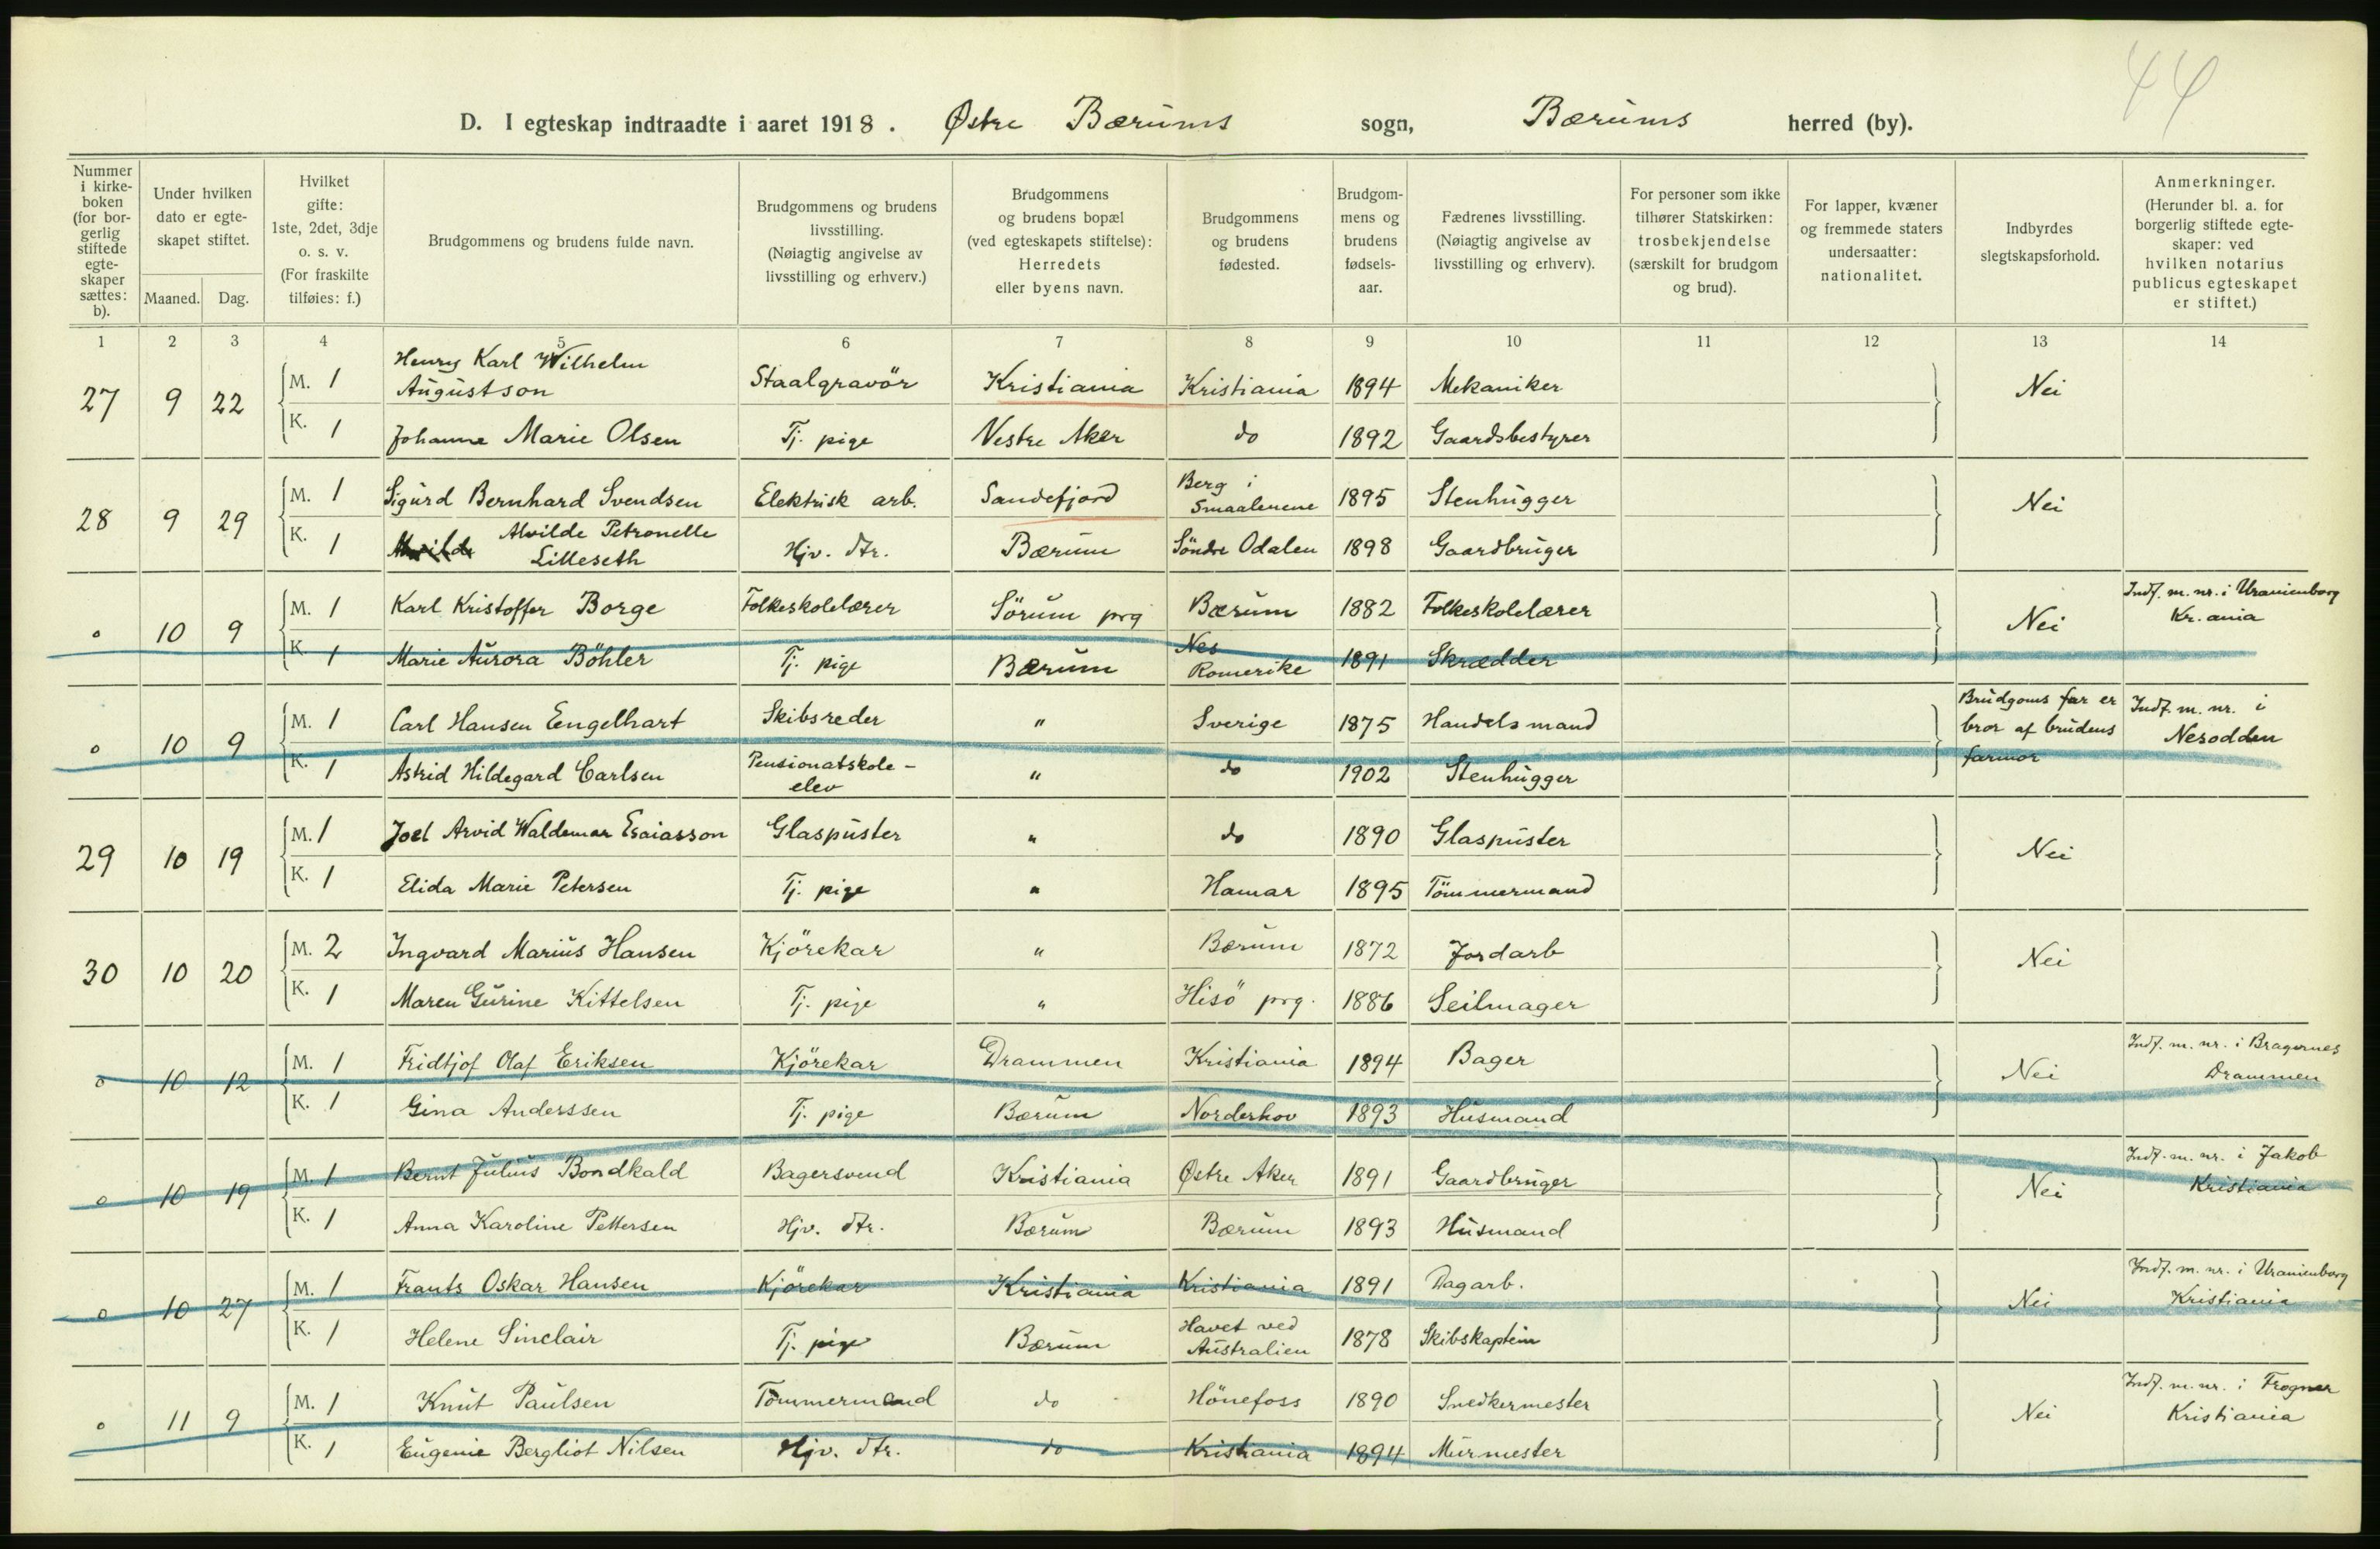 44
D. I egteskap indtraadte i aaret 1918. Østre Bærums sogn, Bærums herred (by).
Nummer i kirke-boken (for bor-gerlig stiftede egte-skaper sættes: b).
Under hvilken dato er egte-skapet stiftet.
Maaned. Dag.
Hvilket gifte: 1ste, 2det, 3dje o. s. v. (For fraskilte tilføies: f.)
Brudgommens og brudens fulde navn.
Brudgommens og brudens livsstilling. (Nøiagtig angivelse av livsstilling og erhverv.)
Brudgommens og brudens bopæl (ved egteskapets stiftelse): Herredets eller byens navn.
Brudgommens og brudens fødested.
Brudgom-mens og brudens fødsels-aar.
Fædrenes livsstilling. (Nøiagtig angivelse av livsstilling og erhverv).
For personer som ikke tilhører Statskirken: trosbekjendelse (særskilt for brudgom og brud).
For lapper, kvæner og fremmede staters undersaatter: nationalitet.
Indbyrdes slegtskapsforhold.
Anmerkninger. (Herunder bl. a. for borgerlig stiftede egte-skaper: ved hvilken notarius publicus egteskapet er stiftet.)
1 2 3 4 5 6 7 8 9 10 11 12 13 14
27 9 22 M. 1 Henry Karl Wilhelm Augustson Staalgravör Kristiania Kristiania 1894 Mekaniker Nei
K. 1 Johanne Marie Olsen Tj. pige Vestre Aker do 1892 Gaardsbestyrer
28 9 29 M. 1 Sigurd Bernhard Svendsen Elektrisk arb. Sandefjord Berg i Smaalenene 1895 Stenhugger Nei
K. 1 Alvilde Petronelle Lilleseth Hjv. dtr. Bærum Söndre Odalen 1898 Gaardbruger
o 10 9 M. 1 Karl Kristoffer Borge Folkeskolelærer Sörum prg Bærum 1882 Folkeskolelærer Nei Indf. m. nr. i Uranienborg Kr.ania
K. 1 Marie Aurora Böhler Tj. pige Bærum Nes Romerike 1891 Skrædder
o 10 9 M. 1 Carl Hansen Engelhart Skibsreder " Sverige 1875 Handelsmand Brudgoms far er bror af brudens farmor Indf. m. nr. i Nesodden
K. 1 Astrid Hildegard Carlsen Pensionatskole-elev " do 1902 Stenhugger
29 10 19 M. 1 Joel Arvid Waldemar Esaiasson Glaspuster " do 1890 Glaspuster Nei
K. 1 Elida Marie Petersen Tj. pige " Hamar 1895 Tömmermand
30 10 20 M. 2 Ingvard Marius Hansen Kjörekar " Bærum 1872 Jordarb Nei
K. 1 Maren Gurine Kittelsen Tj. pige " Hisö prg. 1886 Seilmager
o 10 12 M. 1 Fridtjof Olaf Eriksen Kjörekar Drammen Kristiania 1894 Bager Nei Indf. m. nr. i Bragernes Drammen
K. 1 Gina Anderssen Tj. pige Bærum Norderhov 1893 Husmand
o 10 19 M. 1 Bernt Julius Bondkald Bagersvend Kristiania Østre Aker 1891 Gaardbruger Nei Indf. m. nr. i Jakob Kristiania
K. 1 Anna Karoline Pettersen Hjv. dtr. Bærum Bærum 1893 Husmand
o 10 27 M. 1 Frants Oskar Hansen Kjörekar Kristiania Kristiania 1891 Dagarb. Nei Indf. m. nr. i Uranienborg Kristiania
K. 1 Helene Sinclair Tj. pige Bærum Havet ved Australien 1878 Skibskaptein
o 11 9 M. 1 Knut Paulsen Tömmermand do Hönefoss 1890 Snedkermester Nei Indf. m. nr. i Frogner Kristiania
K. 1 Eugenie Bergliot Nilsen Hjv. dtr. do Kristiania 1894 Murmester